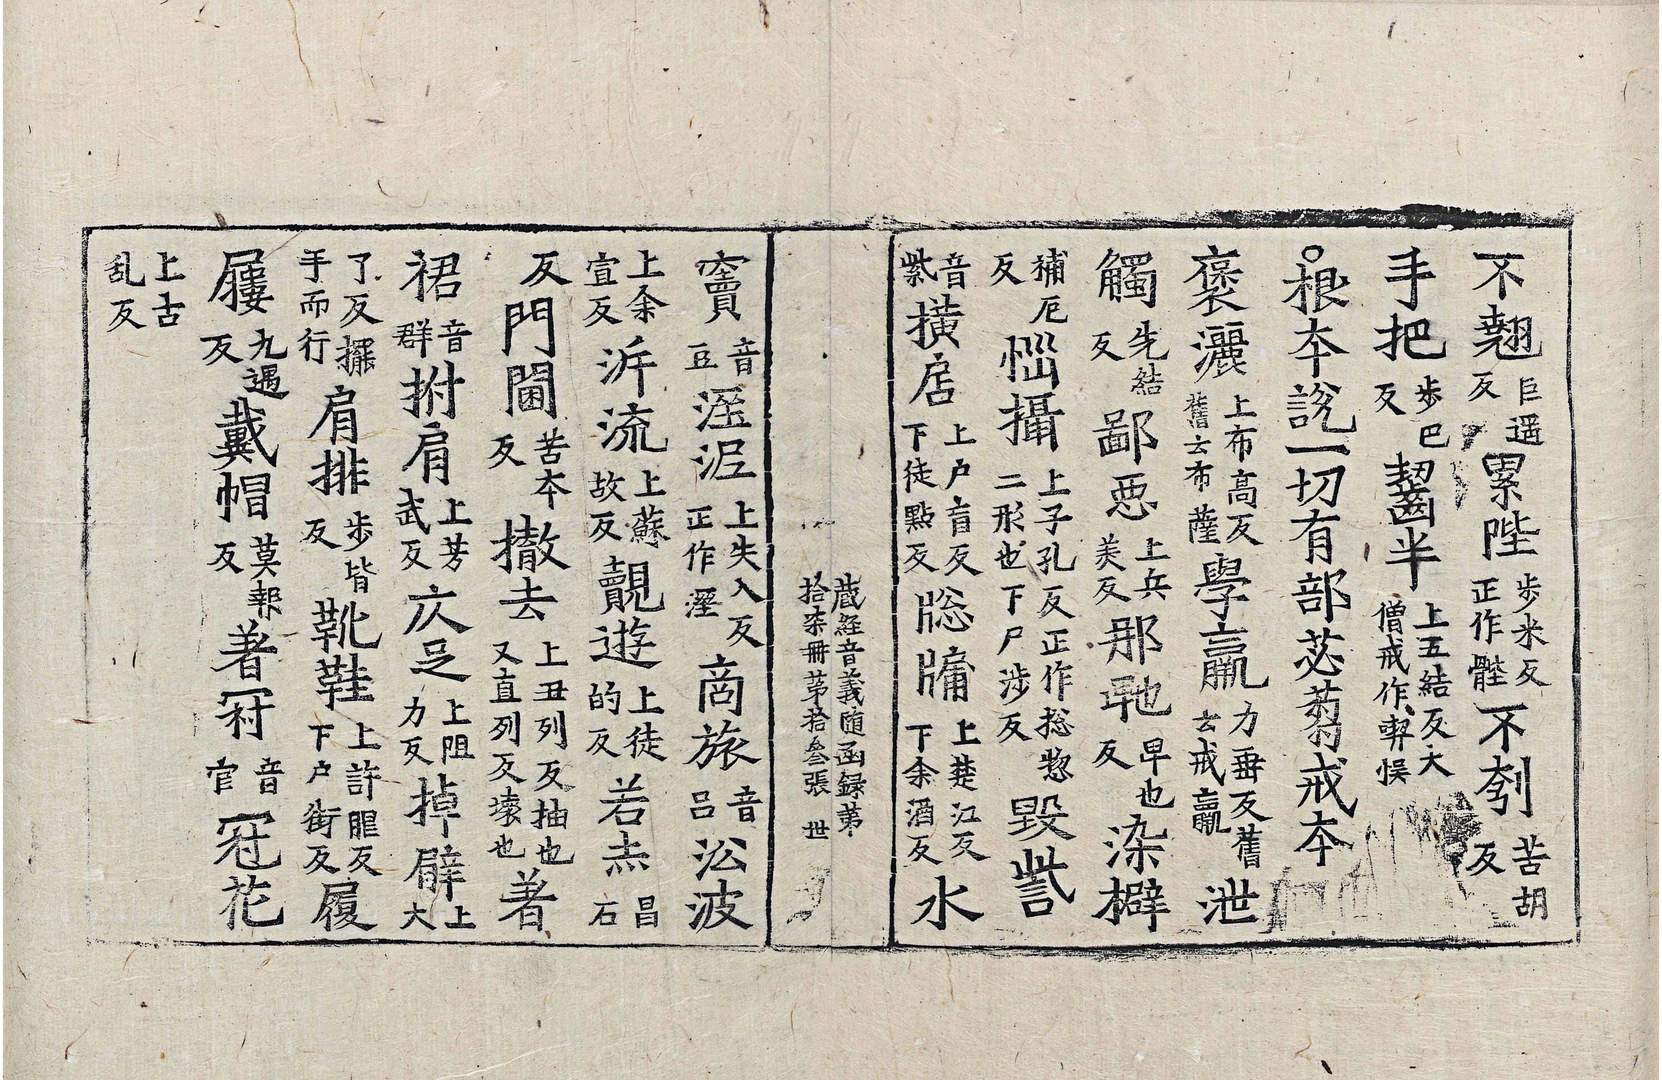 不翹巨遥反累陛步米反正作髀不刳苦胡反
手把步巴反齧半上五結反大僧戒作㓞悮
○根本說一切有部苾蒭戒本
褒灑上布高反舊云布薩學羸力垂反舊云戒羸泄
觸先結反鄙惡上兵美反那𨚗也早也反染擗
補厄反㧾攝上子孔反正作捴惣二形也下尸涉反毀訾
音紫擴店上户盲反下徒點反牎牖上楚江反下余酒反水
藏經音義随函録第拾柒冊第拾叄張 世
竇音豆溼泥上失入反正作溼商旅音吕㳂波
上余宣反泝流上蘇故反覿遊上徒的反若𤆍昌石
反門閫苦本反撤去上丑列反抽也又直列反壊也著
裙音群拊肩上芳武反仄足上阻力反掉臂上大
了反擺手而行肩排步皆反靴鞋上許𦚢反下户街反履
屨九遇反戴帽莫報反著冠音官冠花
上古乱反